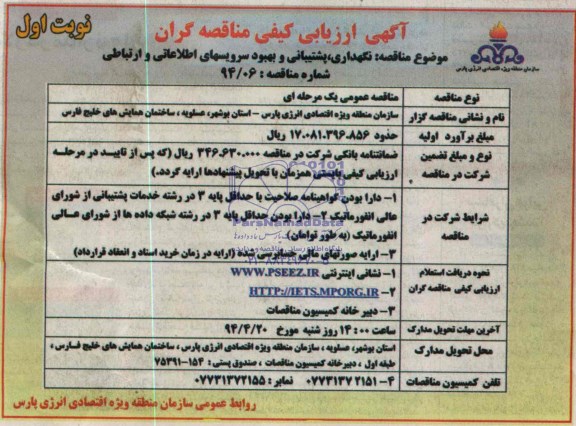 نوبت اول
آگهی ارزیابی کیفی مناقصه گران
سازمان منطقه ویژه اقتصادی انرژی پارس
موضوع مناقصه: نگهداری،پشتیبانی و بهبود سرویسهای اطلاعاتی و ارتباطی
شماره مناقصه : ۹۴/۰۶
نوع مناقصه
مناقصه عمومی یک مرحله ای
نام و نشانی مناقصه گزار
سازمان منطقه ویژه اقتصادی انرژی پارس – استان بوشهر، عسلویه ، ساختمان همایش های خلیج فارس
مبلغ برآورد اولیه
حدود ۱۷.۰۸۱.۳۹۶.۸۵۶ ریال
نوع و مبلغ تضمین
شرکت در مناقصه
ضمانتنامه بانکی شرکت در مناقصه ۳۴۶.۶۳۰.۰۰۰ ریال (که پس از تایید در مرحله
ارزیابی کیفی بایستی همزمان با تحویل پیشنهادها ارایه گردد.)
شرایط شرکت در
مناقصه
۱- دارا بودن گواهینامه صلاحیت با حداقل پایه ۳ در رشته خدمات پشتیبانی از شورای
عالی انفورماتیک ۲- دارا بودن حداقل پایه ۳ در رشته شبکه داده ها از شورای عالی
انفورماتیک (به طور توامان)
۳- ارایه صورتهای مالی حسابرسی شده (ارایه در زمان خرید اسناد و انعقاد قرارداد)
نحوه دریافت استعلام
ارزیابی کیفی مناقصه گران
۱- نشانی اینترنتی WWW.PSEEZ.IR
۲- HTTP://IETS.MPORG.IR
۳- دبیر خانه کمیسیون مناقصات
آخرین مهلت تحویل مدارک
ساعت ۱۴:۰۰ روز شنبه مورخ ۹۴/۴/۲۰
محل تحویل مدارک
استان بوشهر، عسلویه ، سازمان منطقه ویژه اقتصادی انرژی پارس ، ساختمان همایش های خلیج فارس ،
طبقه اول ، دبیرخانه کمیسیون مناقصات ، صندوق پستی : ۱۵۴-۷۵۳۹۱
تلفن کمیسیون مناقصات
۴- ۰۷۷۳۱۳۷۲۱۵۱ نمابر : ۰۷۷۳۱۳۷۲۱۵۵
روابط عمومی سازمان منطقه ویژه اقتصادی انرژی پارس
ParsNamadData